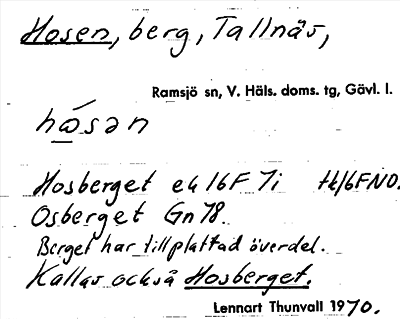 Hosen, berg, Tallnäs,
Ramsjö sn, V. Häls. doms. tg, Gävl. l.
hósən
Hosberget ek 16F 7i tk 16F NO.
Osberget Gn 78.
Berget har tillplattad överdel.
Kallas också Hosberget.
Lennart Thunvall 1970.